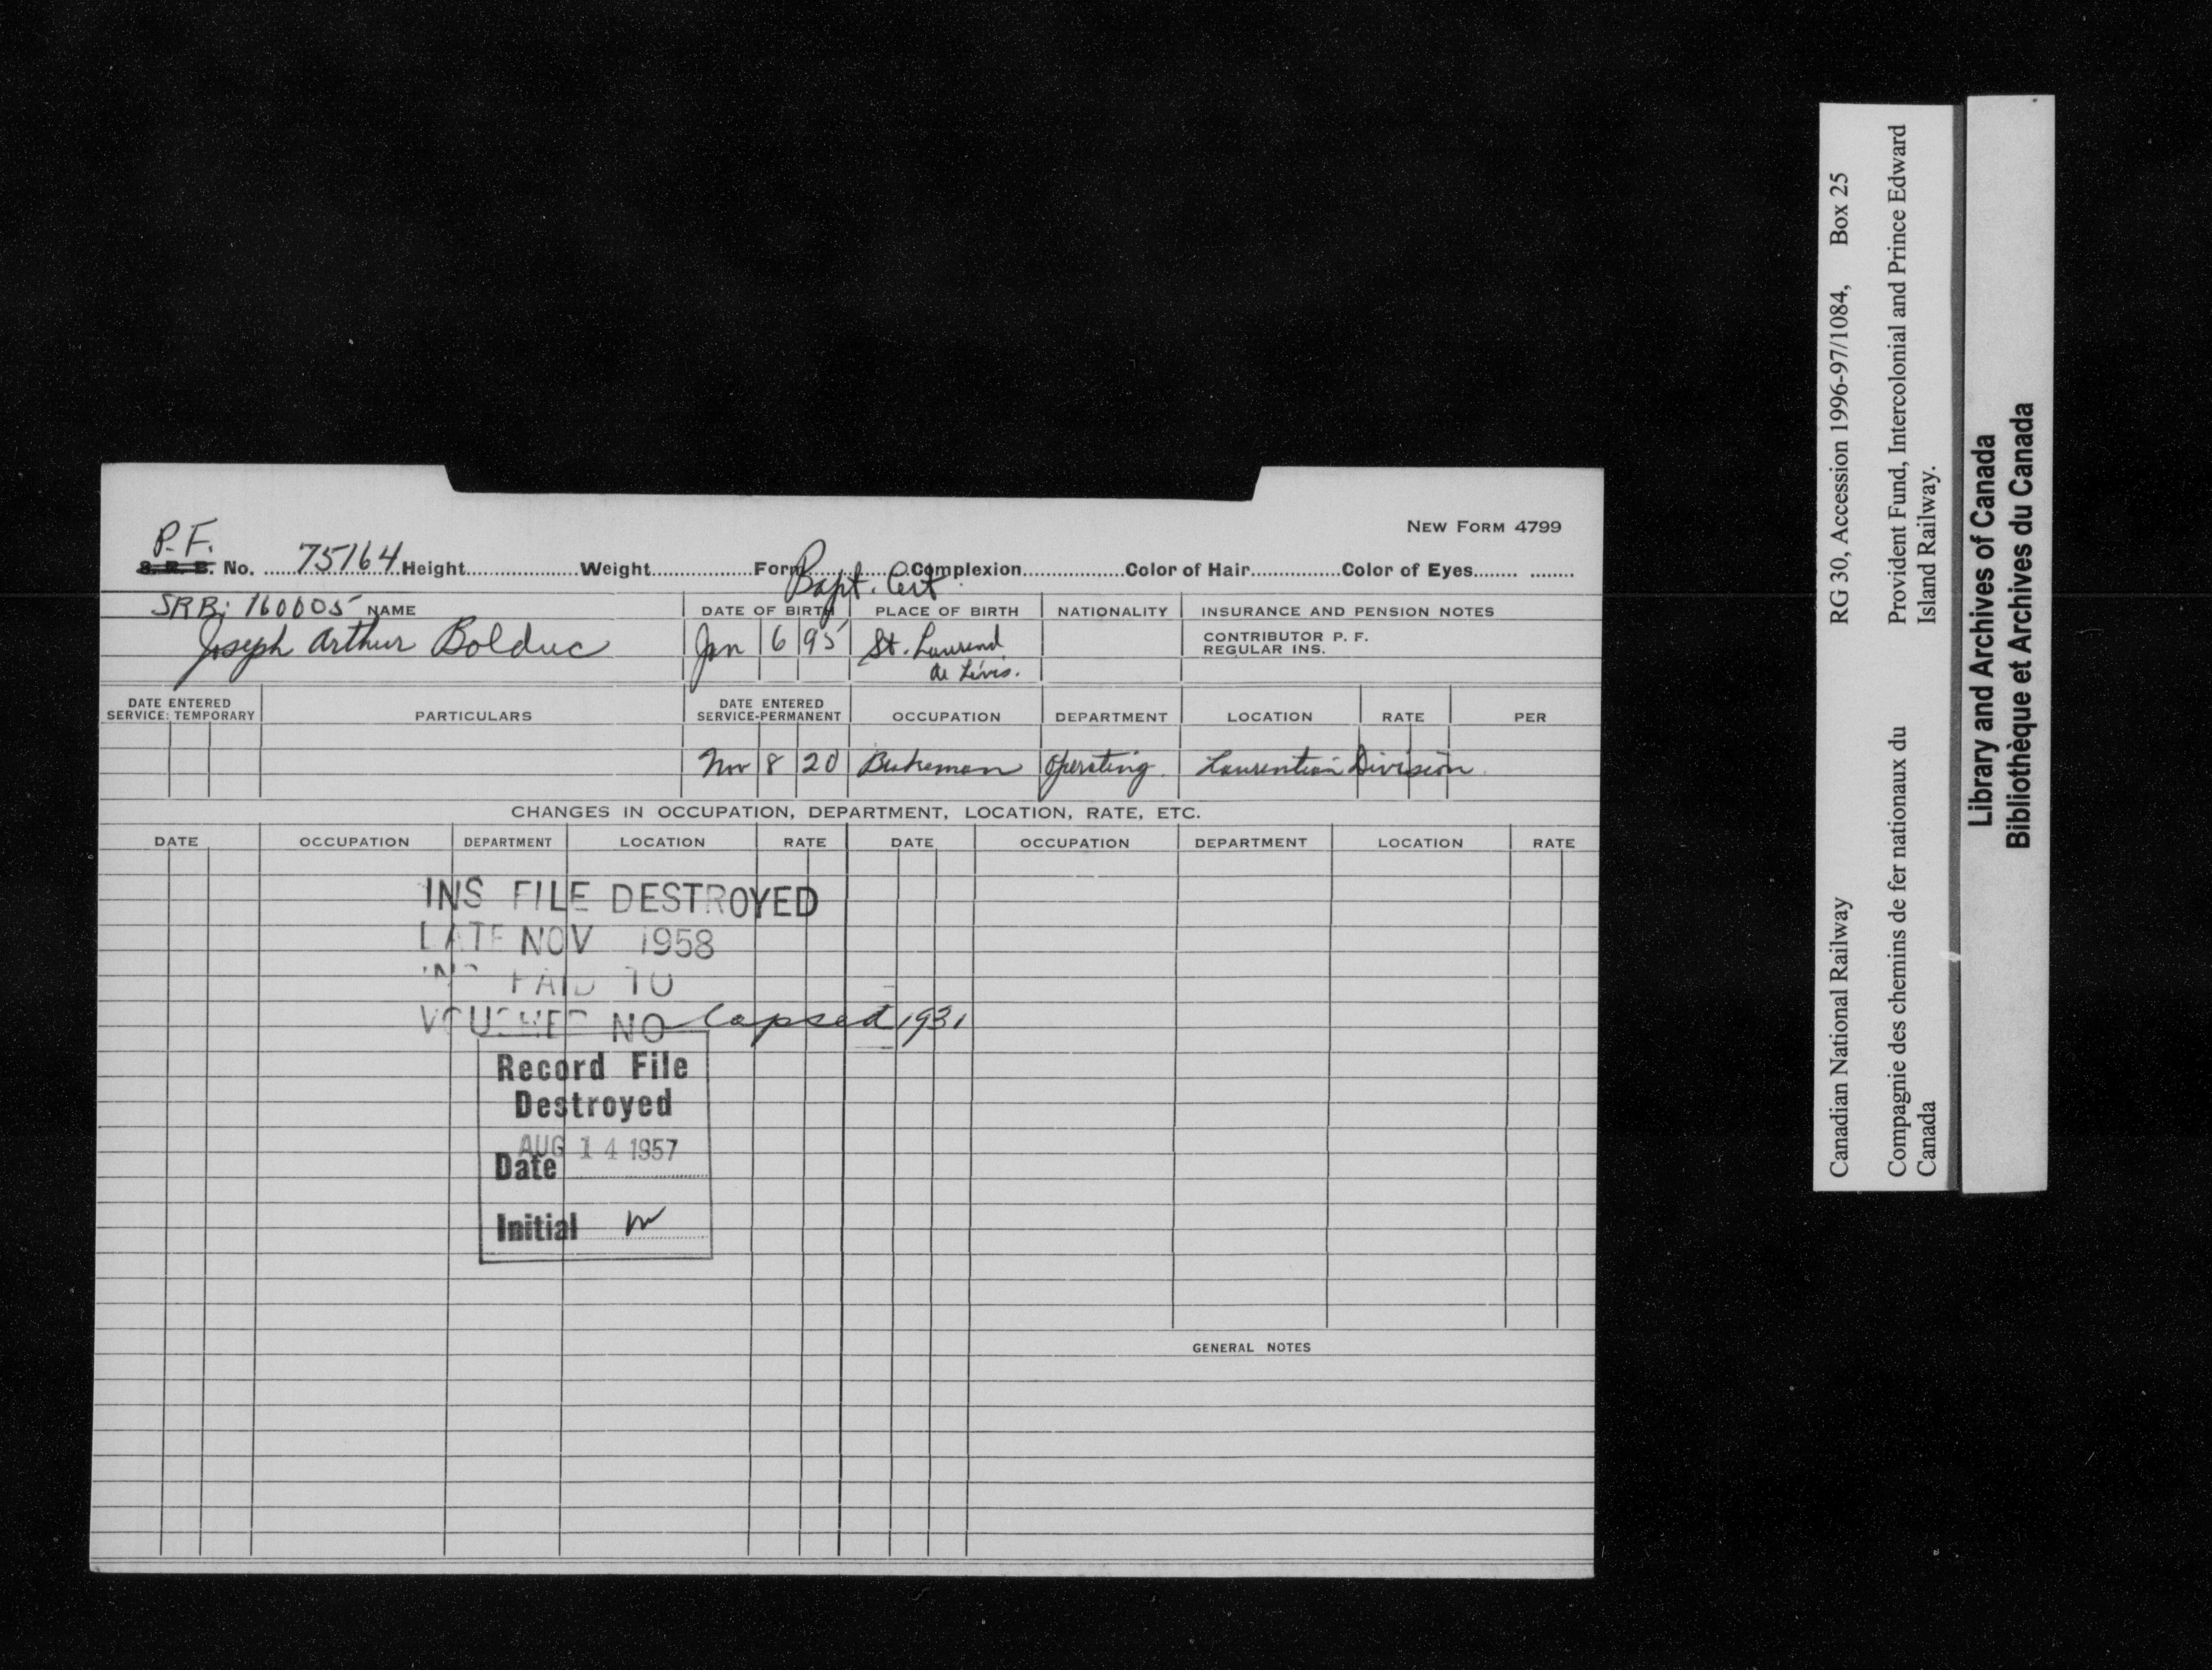 NEW FORM 4799
P.F.
S. R. B. No. 75164 Height Weight Form Complexion Color of Hair Color of Eyes
Bapt. Cert
SRB: 160005 NAME DATE OF BIRTH PLACE OF BIRTH NATIONALITY INSURANCE AND PENSION NOTES
Joseph Arthur Bolduc Jan 6 95 St. Laurend
de Lévis.
CONTRIBUTOR P. F.
REGULAR INS.
DATE ENTERED
SERVICE: TEMPORARY PARTICULARS DATE ENTERED
SERVICE-PERMANENT OCCUPATION DEPARTMENT LOCATION RATE PER
Nov 8 20 Brakeman Operating Laurentian Division
CHANGES IN OCCUPATION, DEPARTMENT, LOCATION, RATE, ETC.
DATE OCCUPATION DEPARTMENT LOCATION RATE DATE OCCUPATION DEPARTMENT LOCATION RATE
INS FILE DESTROYED
DATE NOV 1958
INS PAID TO
VOUCHER NO lapsed 1931
Record File
Destroyed
AUG 14 1957
Date
Initial
GENERAL NOTES
RG 30, Accession 1996-97/1084, Box 25
Canadian National Railway
Provident Fund, Intercolonial and Prince Edward
Island Railway.
Compagnie des chemins de fer nationaux du
Canada
Library and Archives of Canada
Bibliothèque et Archives du Canada